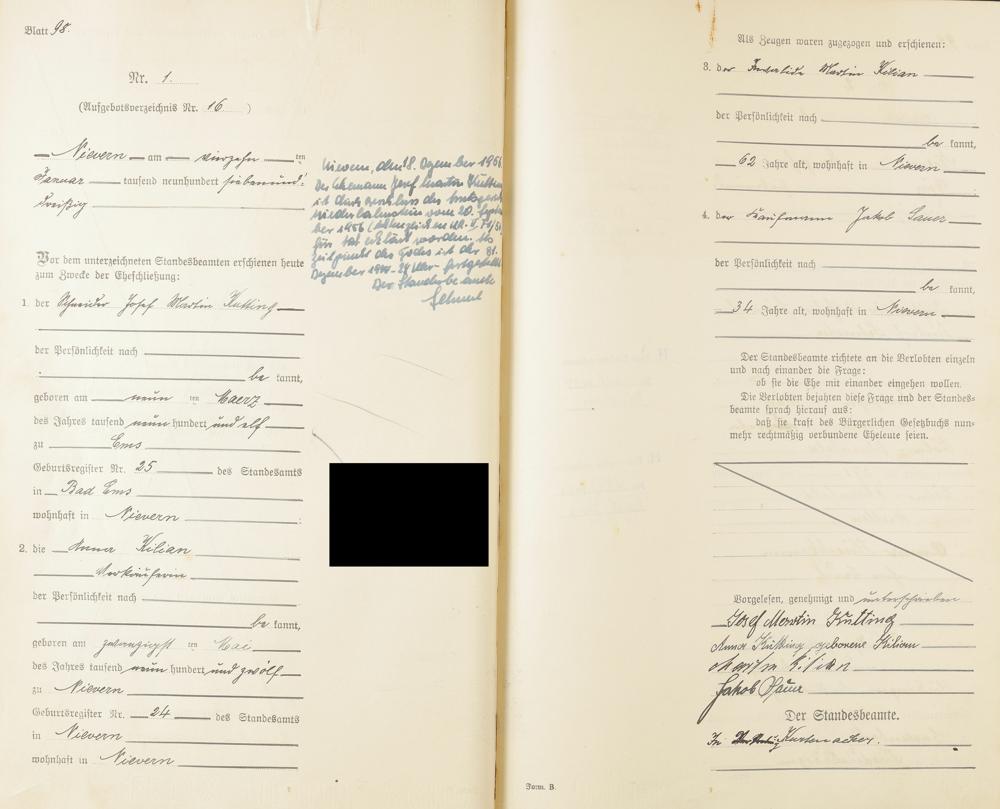 Blatt 98.
Nr. 1.
(Aufgebotsverzeichnis Nr. 16 )
Nievern am vierzehn ten
Januar tausend neunhundert siebenund-
dreißig
Vor dem unterzeichneten Standesbeamten erschienen heute
zum Zwecke der Eheschließung:
1. der Schneider Josef Martin Kutting
der Persönlichkeit nach
be kannt,
geboren am neun ten Maerz
des Jahres tausend neun hundert und elf
zu Ems
Geburtsregister Nr. 25 des Standesamts
in Bad Ems
wohnhaft in Nievern
2. die Anna Kilian
Verkäuferin
der Persönlichkeit nach
be kannt,
geboren am zwanzigst ten Mai
des Jahres tausend neun hundert und zwölf
zu Nievern
Geburtsregister Nr. 24 des Standesamts
in Nievern
wohnhaft in Nievern
Nievern, den 18. Dezember 1956
Der Ehemann Josef Martin Kutting
ist durch Beschluss des Amtsgerich
Niederlahnstein vom 20. Septem
ber 1956 (Aktenzeichen UR. II.
für tot erklärt worden. Als
Zeitpunkt des Todes ist der 31.
Dezember 194 24 Uhr festgestellt
Der Standesbeamte
Als Zeugen waren zugezogen und erschienen:
3. der Martin Kilian
der Persönlichkeit nach
be kannt,
62 Jahre alt, wohnhaft in Nievern
4. der Kaufmann Jakob Sauer
der Persönlichkeit nach
be kannt,
34 Jahre alt, wohnhaft in Nievern
Der Standesbeamte richtete an die Verlobten einzeln
und nach einander die Frage:
ob sie die Ehe mit einander eingehen wollen.
Die Verlobten bejahten diese Frage und der Standes-
beamte sprach hierauf aus:
daß sie kraft des Bürgerlichen Gesetzbuchs nun-
mehr rechtmäßig verbundene Eheleute seien.
Vorgelesen, genehmigt und unterschrieben
Josef Martin Kutting
Anna Kutting geborene Kilian
Martin Kilian
Jakob Sauer
Der Standesbeamte.
In Kurtenacker.
Form. B.